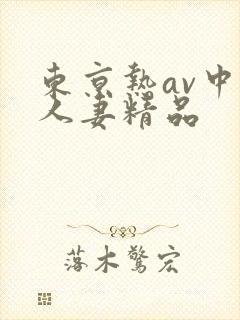 東京熱av中
人妻精品
落木驚宏